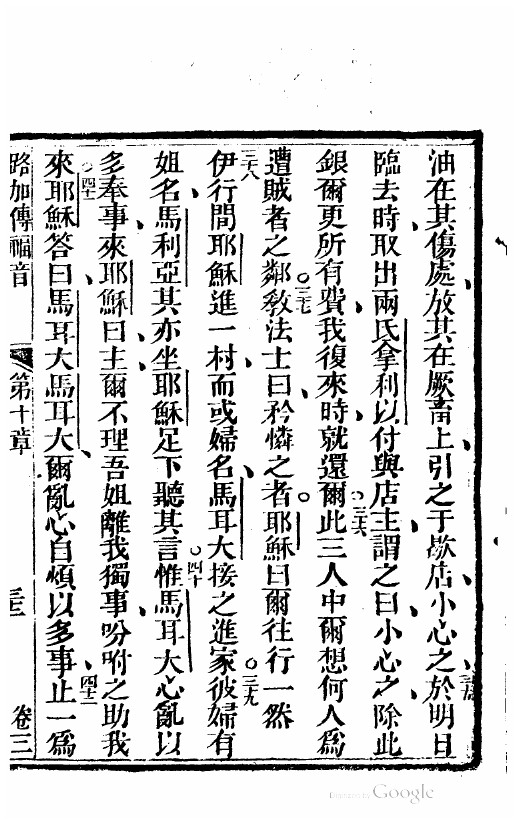 油在其傷處、放其在厥畜上、引之于歇店、小心之、三十五於明日
臨去時、取出兩氏拿利以付與店主、謂之曰、小心之、除此
銀爾更所有費、我復來時、就還爾。○三十六此三人中爾想何人為
遭賊者之鄰。○三十七敎法士曰、矜憐之者。○耶穌曰、爾往行一然
三十八伊行間、耶穌進一村、而或婦名馬耳大接之進家。○三十九彼婦有
姐名馬利亞、其亦坐耶穌足下聽其言。○四十惟馬耳大心亂以
多奉事、來耶穌曰、主、爾不理吾姐離我獨事、吩咐之助我
來。○四十一耶穌答曰、馬耳大馬耳大、爾亂心自煩以多事、四十二止一為
路加傳福音 第十章 三三 卷三
Digitized by Google